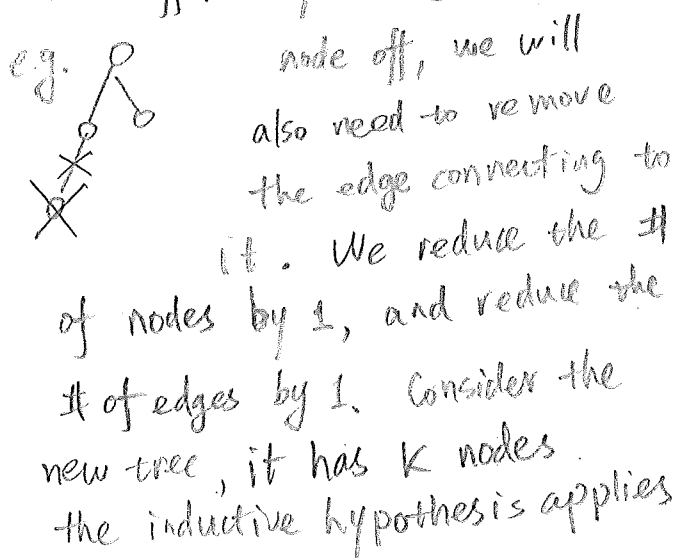 e.g. node off, we will
also need to remove
the edge connecting to
it. We reduce the #
of nodes by 1, and reduce the
# of edges by 1. Consider the
new tree, it has K nodes.
the inductive hypothesis applies